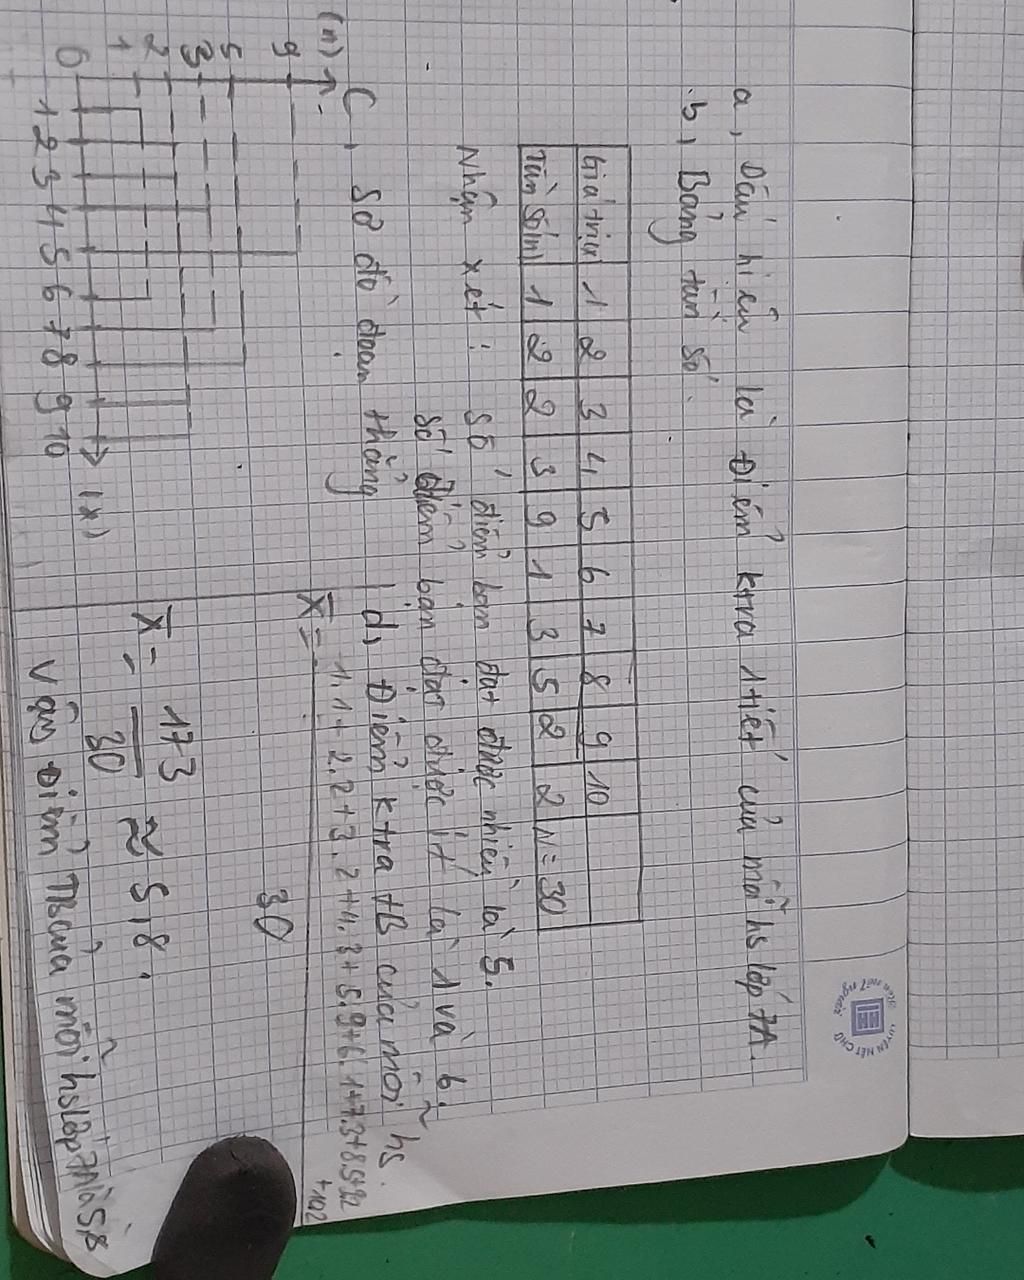 a, Dấu hiệu là Điểm ktra 1 tiết của mỗi hs lớp 7A.
b, Bảng tần số.
Giá trị x 1 2 3 4 5 6 7 8 9 10
Tần số (n) 1 2 2 3 9 1 3 5 2 2 N = 30
Nhận xét: Số điểm bạn đạt được nhiều là 5.
số điểm bạn đạt được ít là 1 và 6.
C, Sơ đồ đoạn thẳng
(n)
9
5
3
2
1
0
1 2 3 4 5 6 7 8 9 10 (x)
d, Điểm ktra TB của mỗi hs.
X = 1.1 + 2.2 + 3.2 + 4.3 + 5.9 + 6.1 + 7.3 + 8.5 + 9.2
+10.2
30
X = 173
30
≈ 5,8.
Vậy Điểm TB của mỗi hs lớp 7A là 5,8
LUYỆN NÉT CHỮ
Rèn nết người